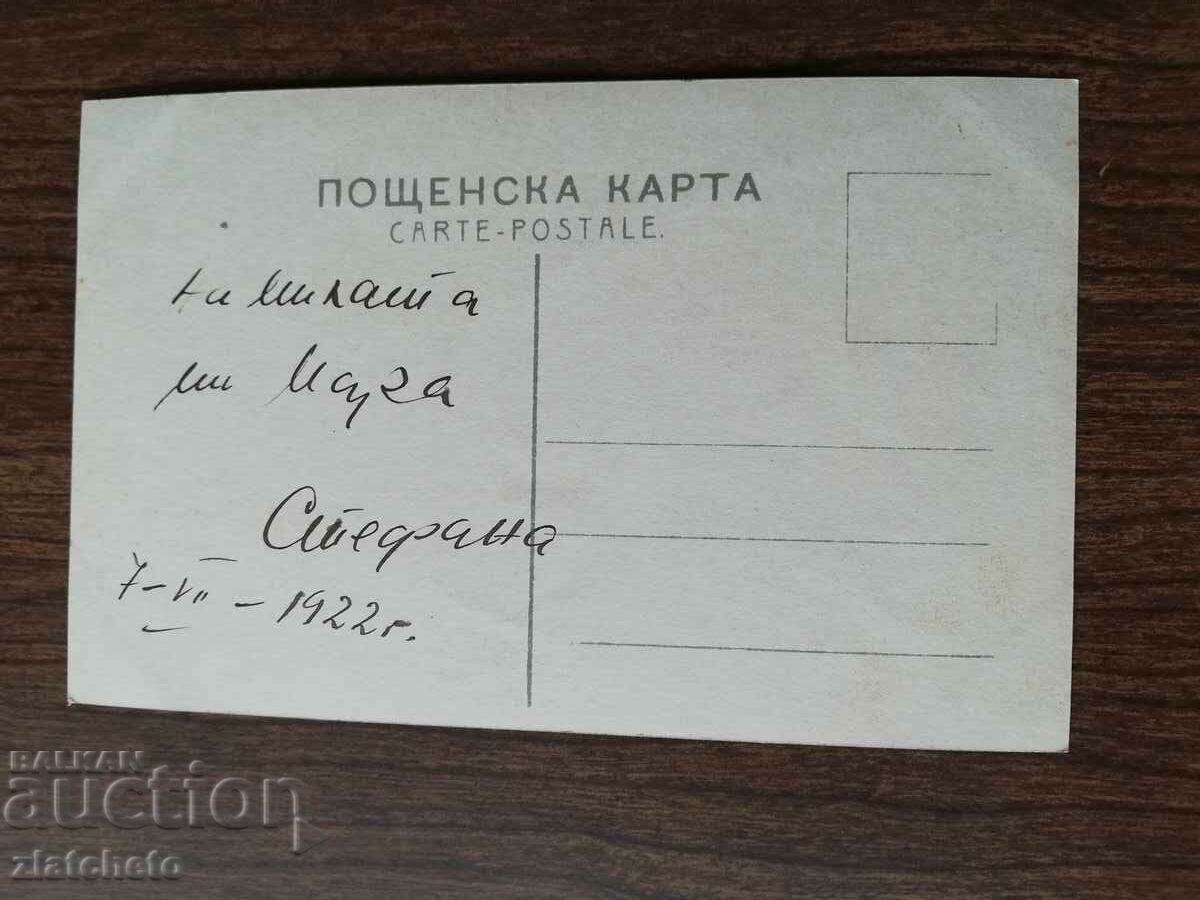 ПОЩЕНСКА КАРТА
CARTE-POSTALE.
на милата
ми
Стефана
7-VII-1922г.
BALKAN
auction
zlatcheto